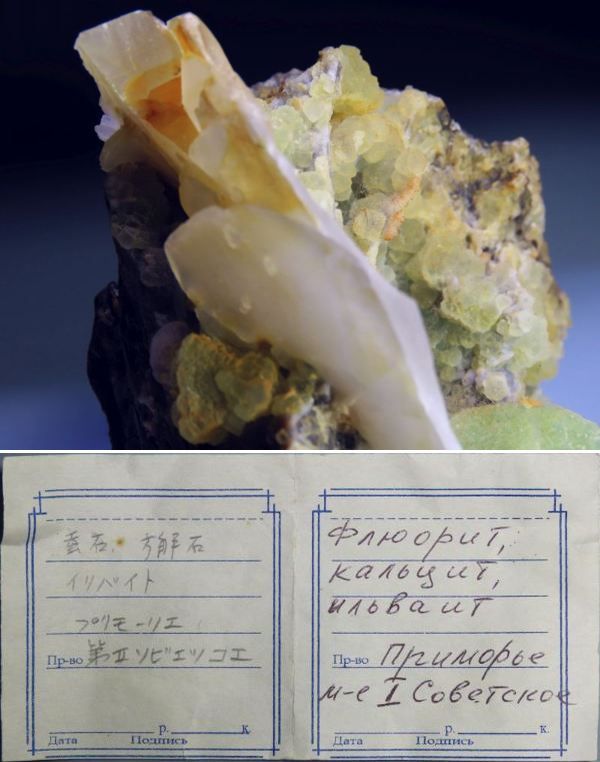 蛍石, 方解石
イリバイト
プリモーリエ
Пр-во 第IIソビエツコエ
р. к.
Дата Подпись
Флюорит,
кальцит,
ильваит
Пр-во Приморье
м-е I Советское
р. к.
Дата Подпись